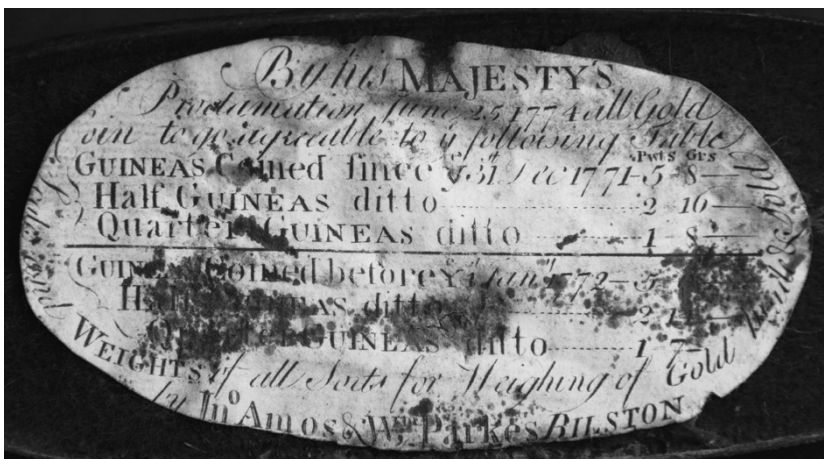 By his MAJESTY'S
Proclamation June 25 1774 all Gold
Coin to go agreable to yͤ following Table
Pwts Grs
GUINEAS Coined since yͤ 31st Dec 1771 - 5 - 8 —
Half GUINEAS ditto ........ 2 16 —
Quarter GUINEAS ditto ........ 1 - 8 —
GUINEAS Coined before yͤ 1 Janʸ 1772 - 5
Half GUINEAS ditto ........ 2
Quarter GUINEAS ditto ........ 1 7 —
WEIGHTS of all Sorts for Weighing of Gold
by Jnº Amos & Wm Parkes BILSTON